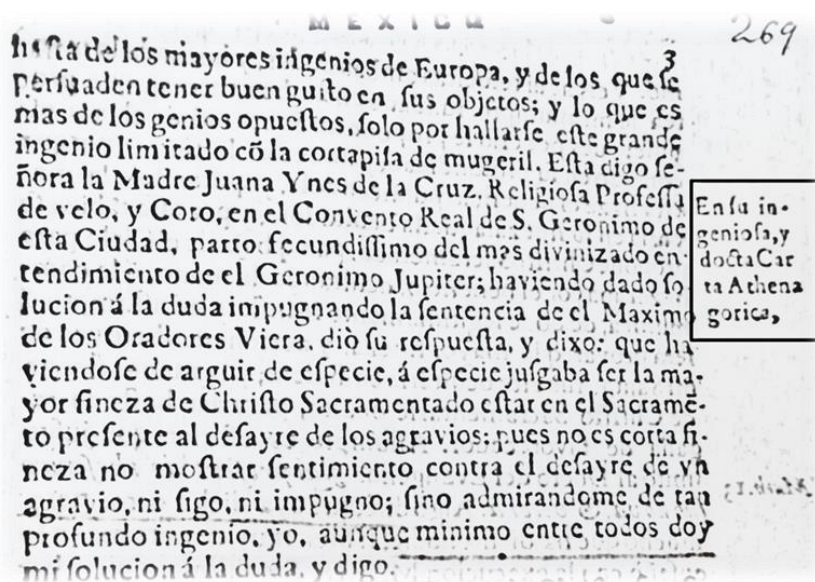 MEXICO
269
3
hasta de los mayores ingenios de Europa, y de los que se
persuaden tener buen gusto en sus objetos; y lo que es
mas de los genios opuestos, solo por hallarse este grande
ingenio limitado cõ la cortapisa de mugeril. Esta digo se-
ñora la Madre Juana Ynes de la Cruz, Religiosa Professa
de velo, y Coro, en el Convento Real de S. Geronimo de
esta Ciudad, parto fecundissimo del mas divinizado en-
tendimiento de el Geronimo Jupiter; haviendo dado so
lucion á la duda impugnando la sentencia de el Maximo
de los Oradores Viera, diò su respuesta, y dixo: que ha
viendose de arguir de especie, á especie jusgaba ser la ma-
yor fineza de Christo Sacramentado estar en el Sacramẽ-
to presente al desayre de los agravios; pues no es corta fi-
neza no mostrar sentimiento contra el desayre de vn
agravio, ni sigo, ni impugno; sino admirandome de tan
profundo ingenio, yo, aunque minimo entre todos doy
mi solucion á la duda, y digo.
En su in-
geniosa, y
docta Car
ta Athena
gorica,